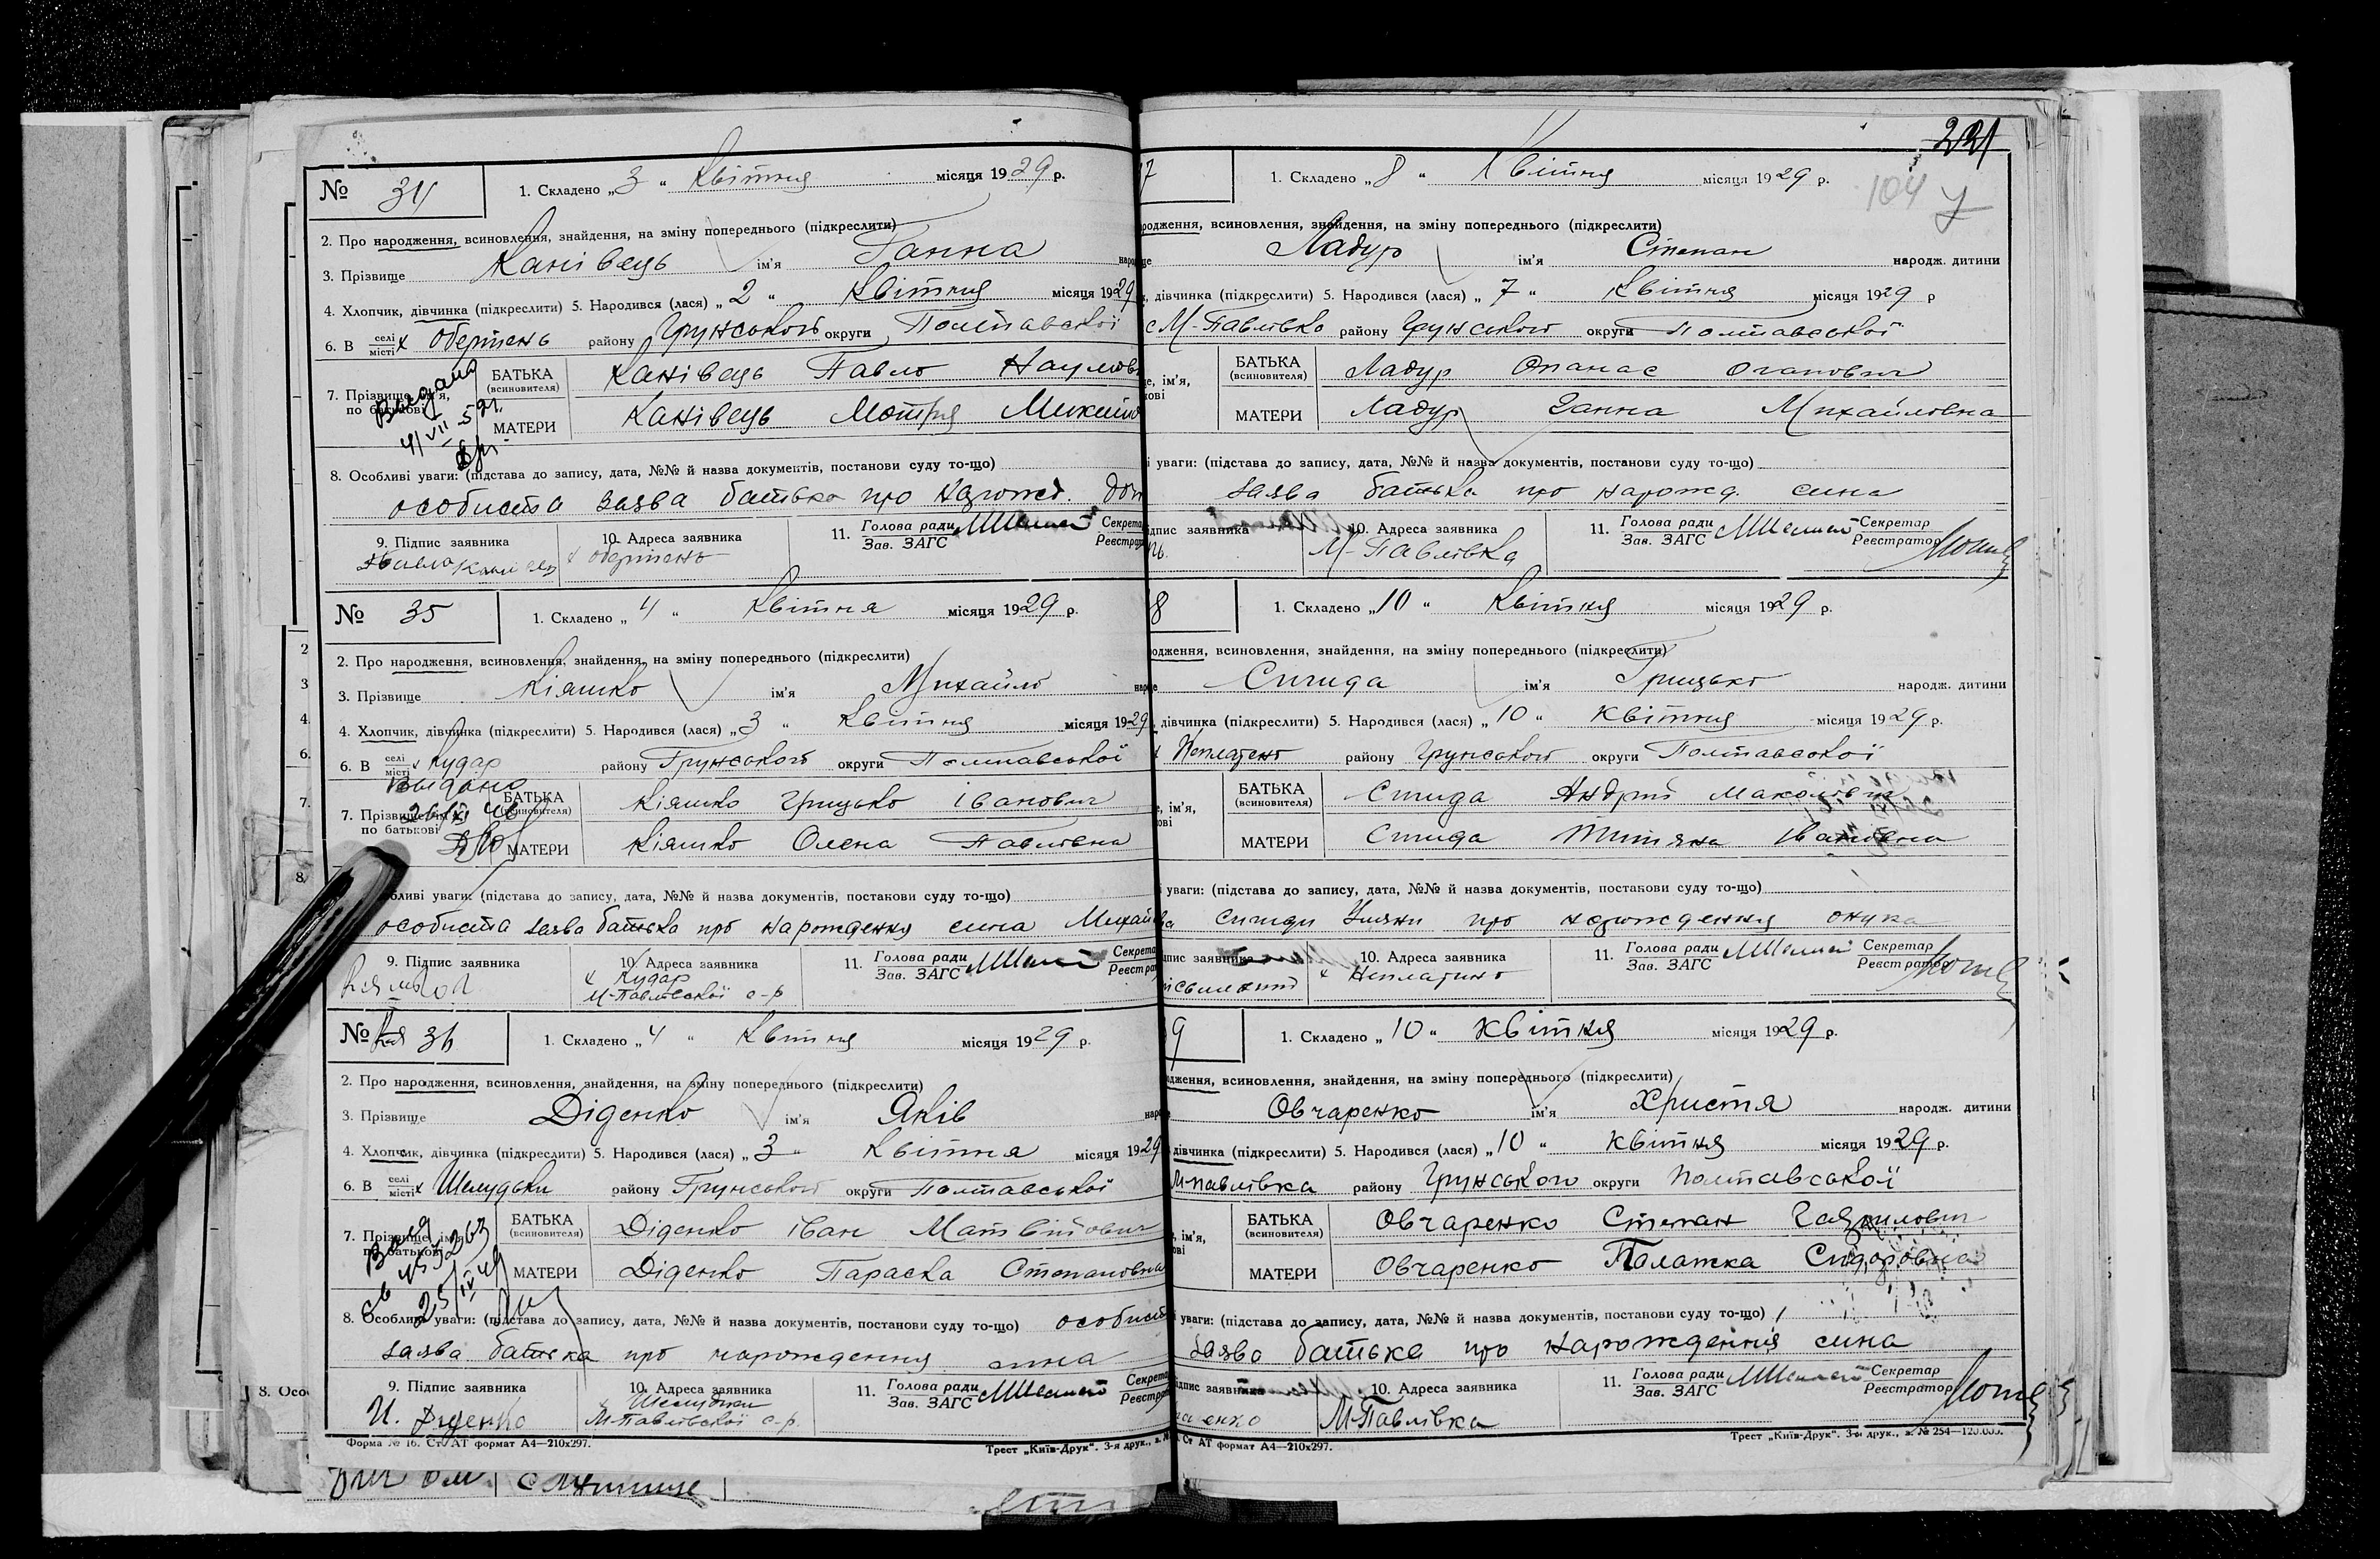 № 34
1. Складено „3“ Квітня місяця 1929 р.
2. Про народження, всиновлення, знайдення, на зміну попереднього (підкреслити)
3. Прізвище Канівець ім'я Ганна
4. Хлопчик, дівчинка (підкреслити) 5. Народився (лася) „2“ Квітня місяця 1929
6. В селі місті х Обертень району Грунського округи Полтавської
7. Прізвище, ім'я, по батькові
БАТЬКА (всиновителя) Канівець Павло Наумов
МАТЕРИ Канівець Мотря
8. Особливі уваги: (підстава до запису, дата, №№ й назва документів, постанови суду то-що)
особиста заява батька про нарожд.
9. Підпис заявника
10. Адреса заявника
х Обертень
11. Голова ради Зав. ЗАГС
№ 35
1. Складено „4“ Квітня місяця 1929 р.
2. Про народження, всиновлення, знайдення, на зміну попереднього (підкреслити)
3. Прізвище Кіяшко ім'я Михайло
4. Хлопчик, дівчинка (підкреслити) 5. Народився (лася) „3“ Квітня місяця 1929
6. В селі місті х Кудар району Грунського округи Полтавської
7. Прізвище, по батькові
БАТЬКА (всиновителя) Кіяшко Грицько Іванович
МАТЕРИ Кіяшко Олена Павлівна
бливі уваги: (підстава до запису, дата, №№ й назва документів, постанови суду то-що)
особиста заява батька про нарождення сина Михай
9. Підпис заявника
10. Адреса заявника
х Кудар
М-Павлівської с-р
11. Голова ради Зав. ЗАГС
№ 36
1. Складено „4“ Квітня місяця 1929 р.
2. Про народження, всиновлення, знайдення, на зміну попереднього (підкреслити)
3. Прізвище Діденко ім'я Яків
4. Хлопчик, дівчинка (підкреслити) 5. Народився (лася) „3“ Квітня місяця 1929
6. В селі місті х Шелудьки району Грунського округи Полтавської
7. Прізвище, ім'я, по батькові
БАТЬКА (всиновителя) Діденко Іван Матвійович
МАТЕРИ Діденко Параска Степановна
8. Особливі уваги: (підстава до запису, дата, №№ й назва документів, постанови суду то-що) особист
заява батька про нарождення сина
9. Підпис заявника
И. Діденко
10. Адреса заявника
х Шелудьки
М-Павлівської с-р.
11. Голова ради Зав. ЗАГС
Форма № 16. Ст. АТ формат А4—210х297.
Трест „Київ-Друк“. 3-я друк.,
221
104
7
1. Складено „8“ Квітня місяця 1929 р.
родження, всиновлення, знайдення, на зміну попереднього (підкреслити)
Ладур ім'я Степан народж. дитини
дівчинка (підкреслити) 5. Народився (лася) „7“ Квітня місяця 1929 р
с М-Павлівка району Грунського округи Полтавської
БАТЬКА (всиновителя) Ладур Опанас
МАТЕРИ Ладур Ганна Михайловна
уваги: (підстава до запису, дата, №№ й назва документів, постанови суду то-що)
заява батька про нарожд. сина
10. Адреса заявника
М-Павлівка
11. Голова ради Зав. ЗАГС
Секретар Реєстратор
8
1. Складено „10“ Квітня місяця 1929 р.
одження, всиновлення, знайдення, на зміну попереднього (підкреслити)
Сигида ім'я Грицько народж. дитини
дівчинка (підкреслити) 5. Народився (лася) „10“ Квітня місяця 1929 р.
району Грунського округи Полтавської
БАТЬКА (всиновителя) Сигида Андрій
МАТЕРИ Сигида Титяна Івановна
уваги: (підстава до запису, дата, №№ й назва документів, постанови суду то-що)
Сигиди Уляни про нарождення онука
10. Адреса заявника
11. Голова ради Зав. ЗАГС
Секретар Реєстратор
9
1. Складено „10“ Квітня місяця 1929 р.
одження, всиновлення, знайдення, на зміну попереднього (підкреслити)
Овчаренко ім'я Христя народж. дитини
дівчинка (підкреслити) 5. Народився (лася) „10“ Квітня місяця 1929 р.
М-Павлівка району Грунського округи Полтавської
БАТЬКА (всиновителя) Овчаренко Степан Гаврилович
МАТЕРИ Овчаренко Палажка Сидоровна
уваги: (підстава до запису, дата, №№ й назва документів, постанови суду то-що)
заява батька про нарождення сина
10. Адреса заявника
М-Павлівка
11. Голова ради Зав. ЗАГС
Секретар Реєстратор
Ст АТ формат А4—210х297.
Трест „Київ-Друк“. 3-я друк., з. № 254—120.000.